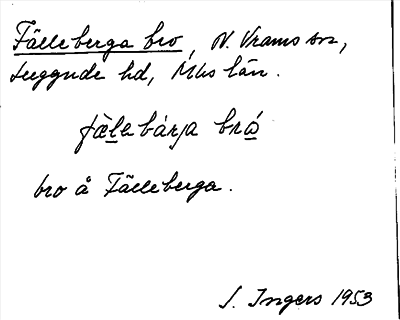 Fälleberga bro, N. Vrams sn,
Luggude hd, Mhs län.
fä̀lebárja bró
bro å Fälleberga.
I. Ingers 1953